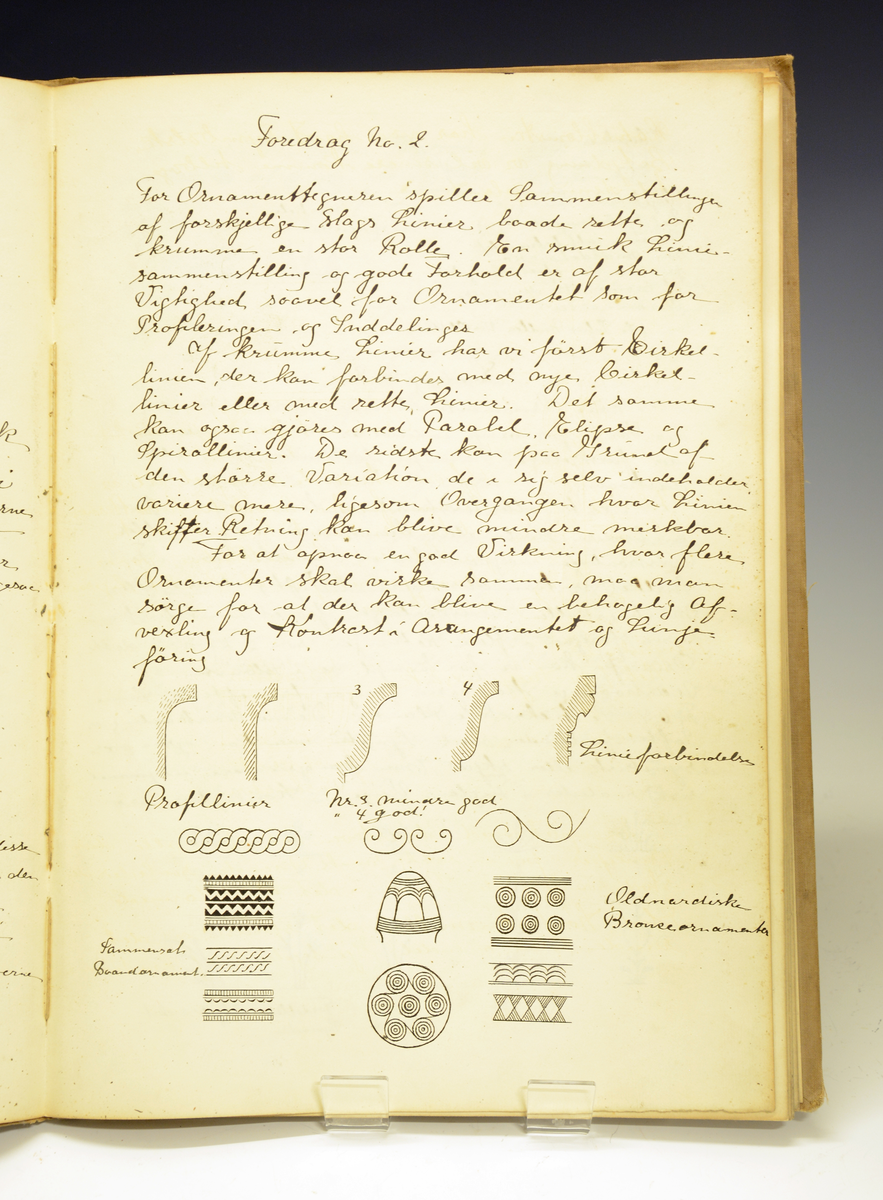 Foredrag No. 2.
For Ornamenttegneren spiller Sammenstillingen
af forskjellige Slags Linier baade rette og
krumme en stor Rolle. En smuk Linie-
sammenstilling og gode Forhold er af stor
Vigtighed saavel for Ornamentet som for
Profileringen og Inddelinger
Af krumme Linier har vi först Cirkel-
linien, der kan forbindes med nye Cirkel-
linier eller med rette Linier. Det samme
kan ogsaa gjöres med Parabel, Elipse og
Spirallinier. De sidste kan paa Grund af
den större Variation de i sig selv indeholder
variere mere, ligesom Overgangen hvor Linien
skifter Retning kan blive mindre merkbar.
For at opnaa en god Virkning, hvor flere
Ornamenter skal virke sammen, maa man
sörge for at der kan blive en behagelig Af-
vexling og Kontrast i Arangementet og Linje-
föring
3
4
Linieforbindelse
Profillinier
Nr. 3. mindre god
" 4 god!
Oldnordiske
Bronceornamenter
Sammensat
Baandornament.